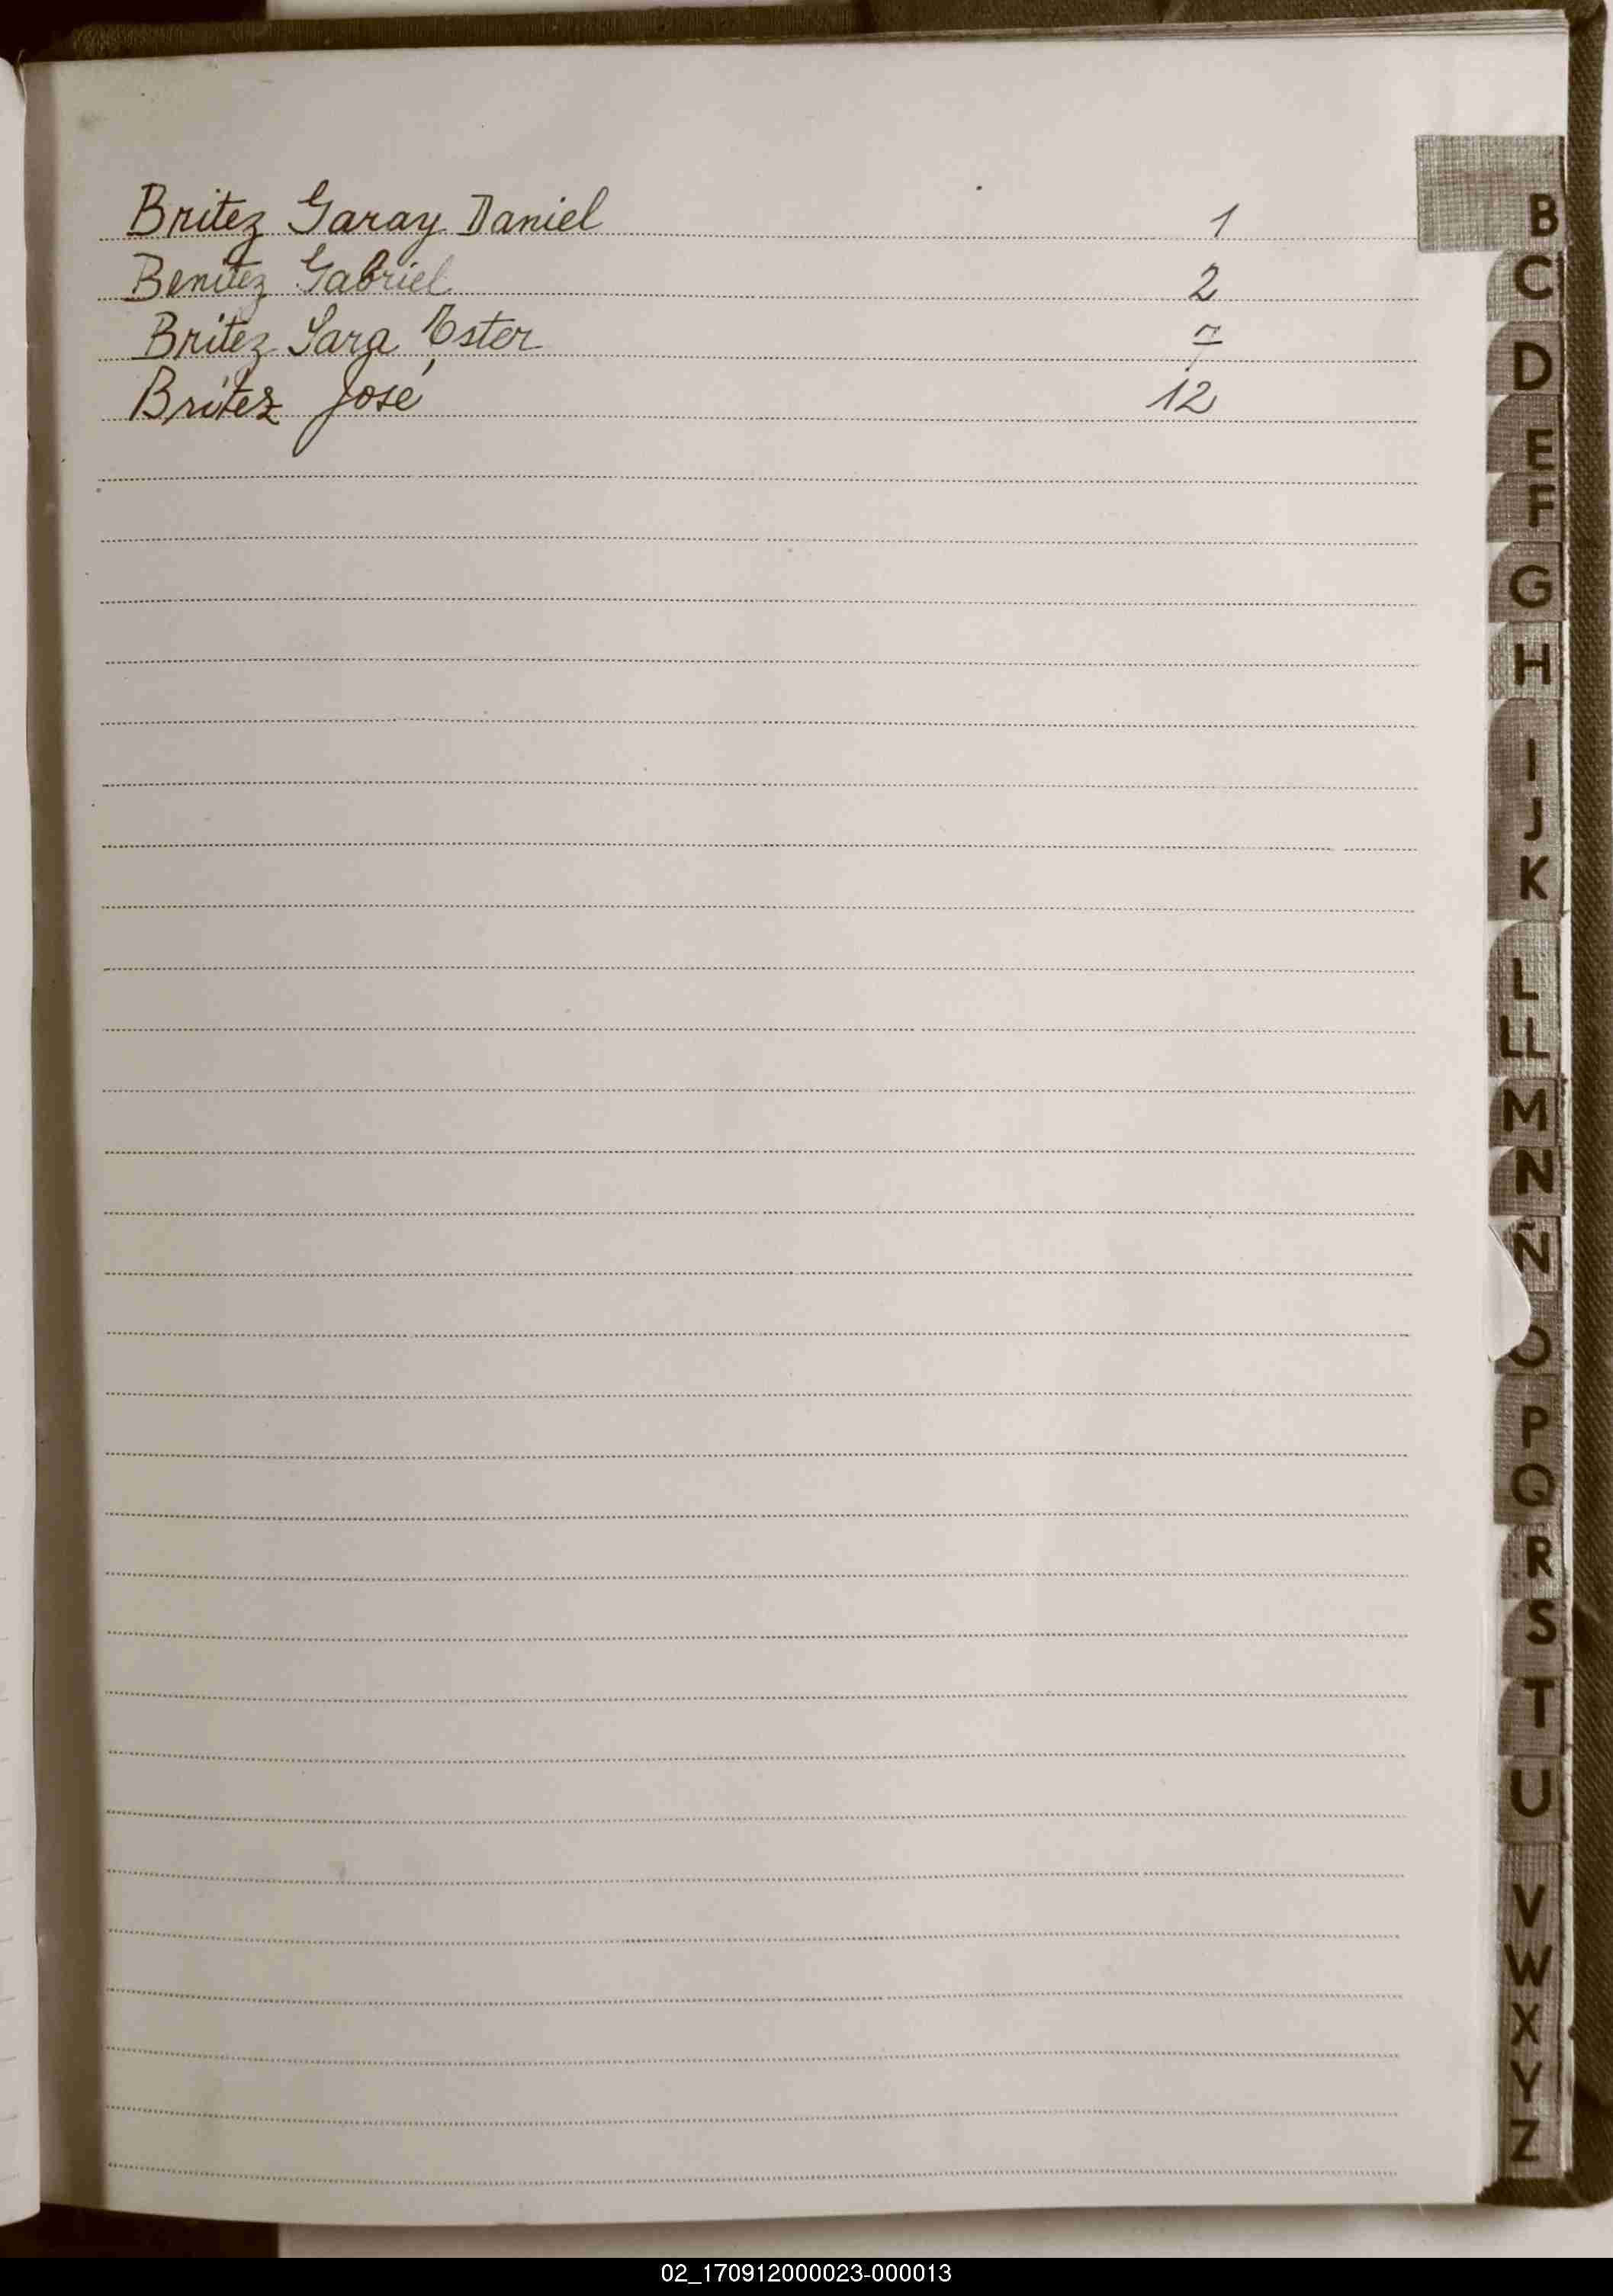 Britez Garay Daniel 1
Benitez Gabriel 2
Britez Sara Ester 7
Britez José 12
B
C
D
E
F
G
H
I
J
K
L
LL
M
N
Ñ
O
P
Q
R
S
T
U
V
W
X
Y
Z
02_170912000023-000013